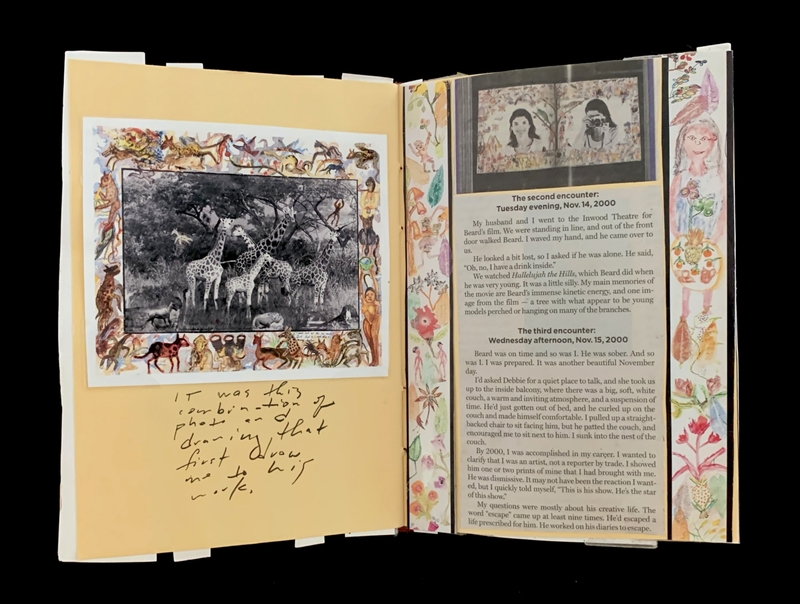 IT was this
combination of
photo and
drawing that
first drew
me to his
work.
The second encounter:
Tuesday evening, Nov. 14, 2000
My husband and I went to the Inwood Theatre for
Beard's film. We were standing in line, and out of the front
door walked Beard. I waved my hand, and he came over to
us.
He looked a bit lost, so I asked if he was alone. He said,
"Oh, no, I have a drink inside."
We watched Hallelujah the Hills, which Beard did when
he was very young. It was a little silly. My main memories of
the movie are Beard's immense kinetic energy, and one im-
age from the film — a tree with what appear to be young
models perched or hanging on many of the branches.
The third encounter:
Wednesday afternoon, Nov. 15, 2000
Beard was on time and so was I. He was sober. And so
was I. I was prepared. It was another beautiful November
day.
I'd asked Debbie for a quiet place to talk, and she took us
up to the inside balcony, where there was a big, soft, white
couch, a warm and inviting atmosphere, and a suspension of
time. He'd just gotten out of bed, and he curled up on the
couch and made himself comfortable. I pulled up a straight-
backed chair to sit facing him, but he patted the couch, and
encouraged me to sit next to him. I sunk into the nest of the
couch.
By 2000, I was accomplished in my career. I wanted to
clarify that I was an artist, not a reporter by trade. I showed
him one or two prints of mine that I had brought with me.
He was dismissive. It may not have been the reaction I want-
ed, but I quickly told myself, "This is his show. He's the star
of this show."
My questions were mostly about his creative life. The
word "escape" came up at least nine times. He'd escaped a
life prescribed for him. He worked on his diaries to escape.